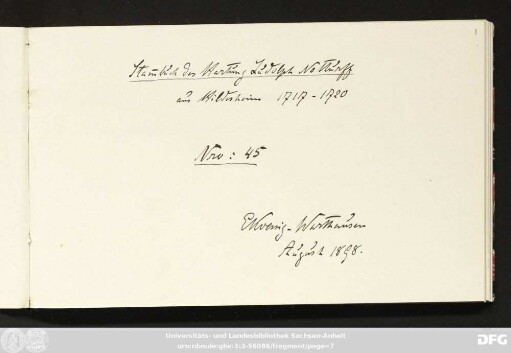 Stammbuch des Hartung Ludolph Notturfft
aus Hildesheim 1717-1720
Nro: 45
EKoenig-Warthausen
August 1898.
Universitäts- und Landesbibliothek Sachsen-Anhalt
urn:nbn:de:gbv:3:3-56086/fragment/page=7
DFG